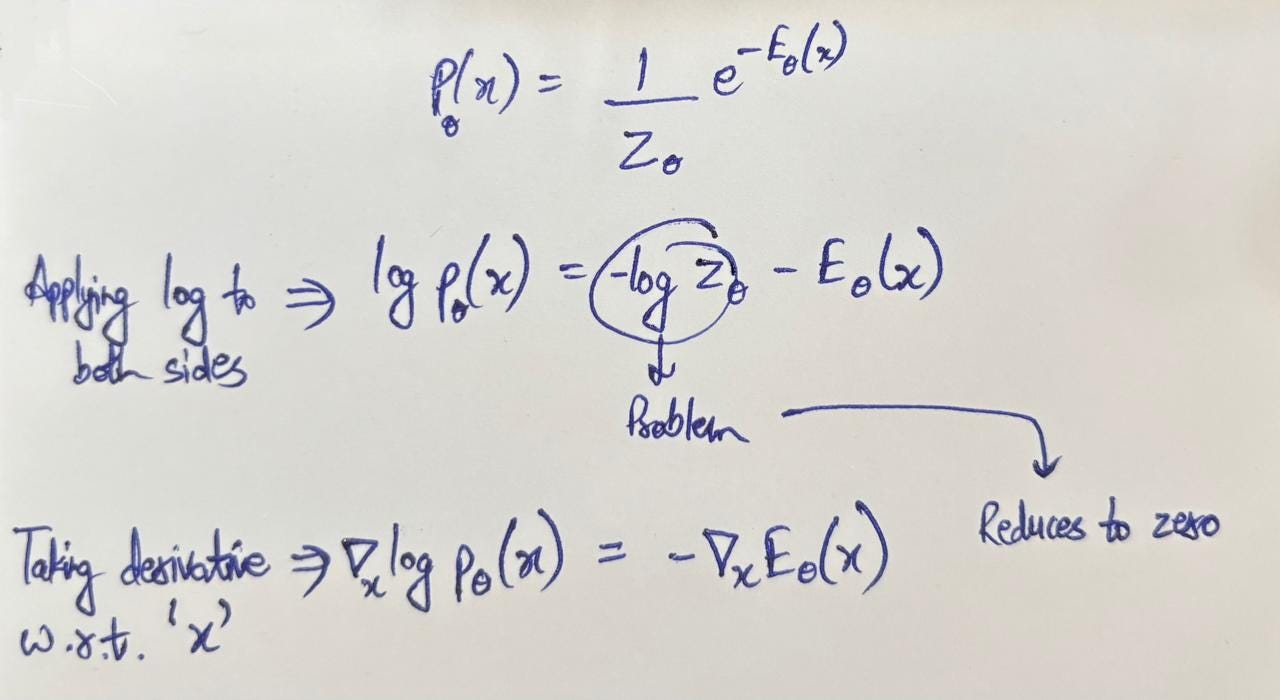 p_θ(x) = 1/Z_θ e^{-E_θ(x)}
Applying log to both sides ⇒ log p_θ(x) = -log Z_θ - E_θ(x)
Problem
Reduces to zero
Taking derivative w.r.t. 'x' ⇒ ∇_x log p_θ(x) = -∇_x E_θ(x)